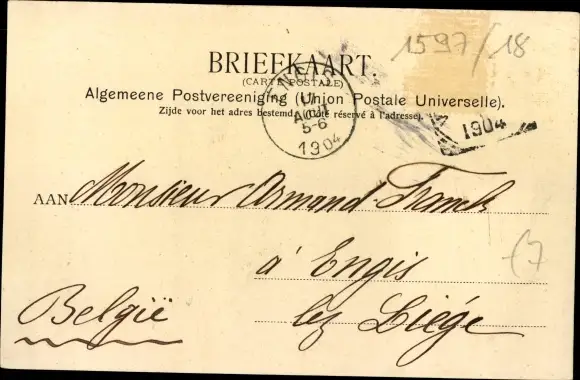 1597/18
BRIEFKAART.
(CARTE POSTALE)
Algemeene Postvereeniging (Union Postale Universelle).
Zijde voor het adres bestemd. (Côté réservé à l'adresse).
5-6
1904
1904
AAN Monsieur Armand Franck
á Engis
lez Liége
België